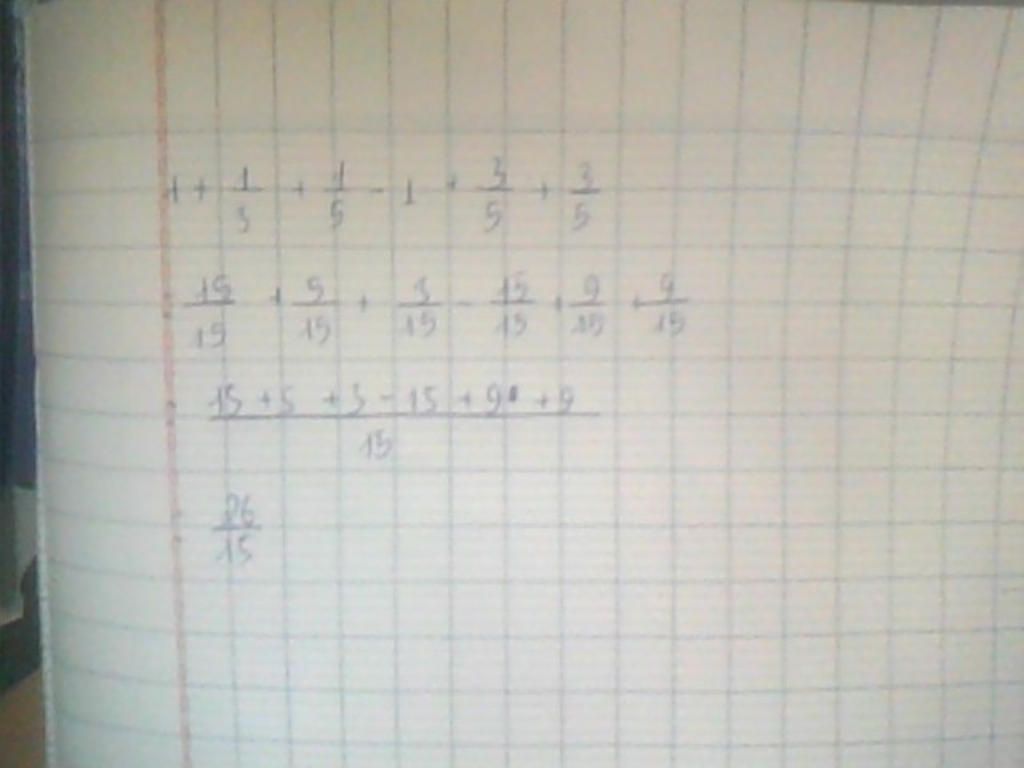 1 + 1/3 + 1/5 - 1 + 3/5 + 3/5
15/15 + 5/15 + 3/15 - 15/15 + 9/15 + 9/15
(15 + 5 + 3 - 15 + 9 + 9)/15
26/15